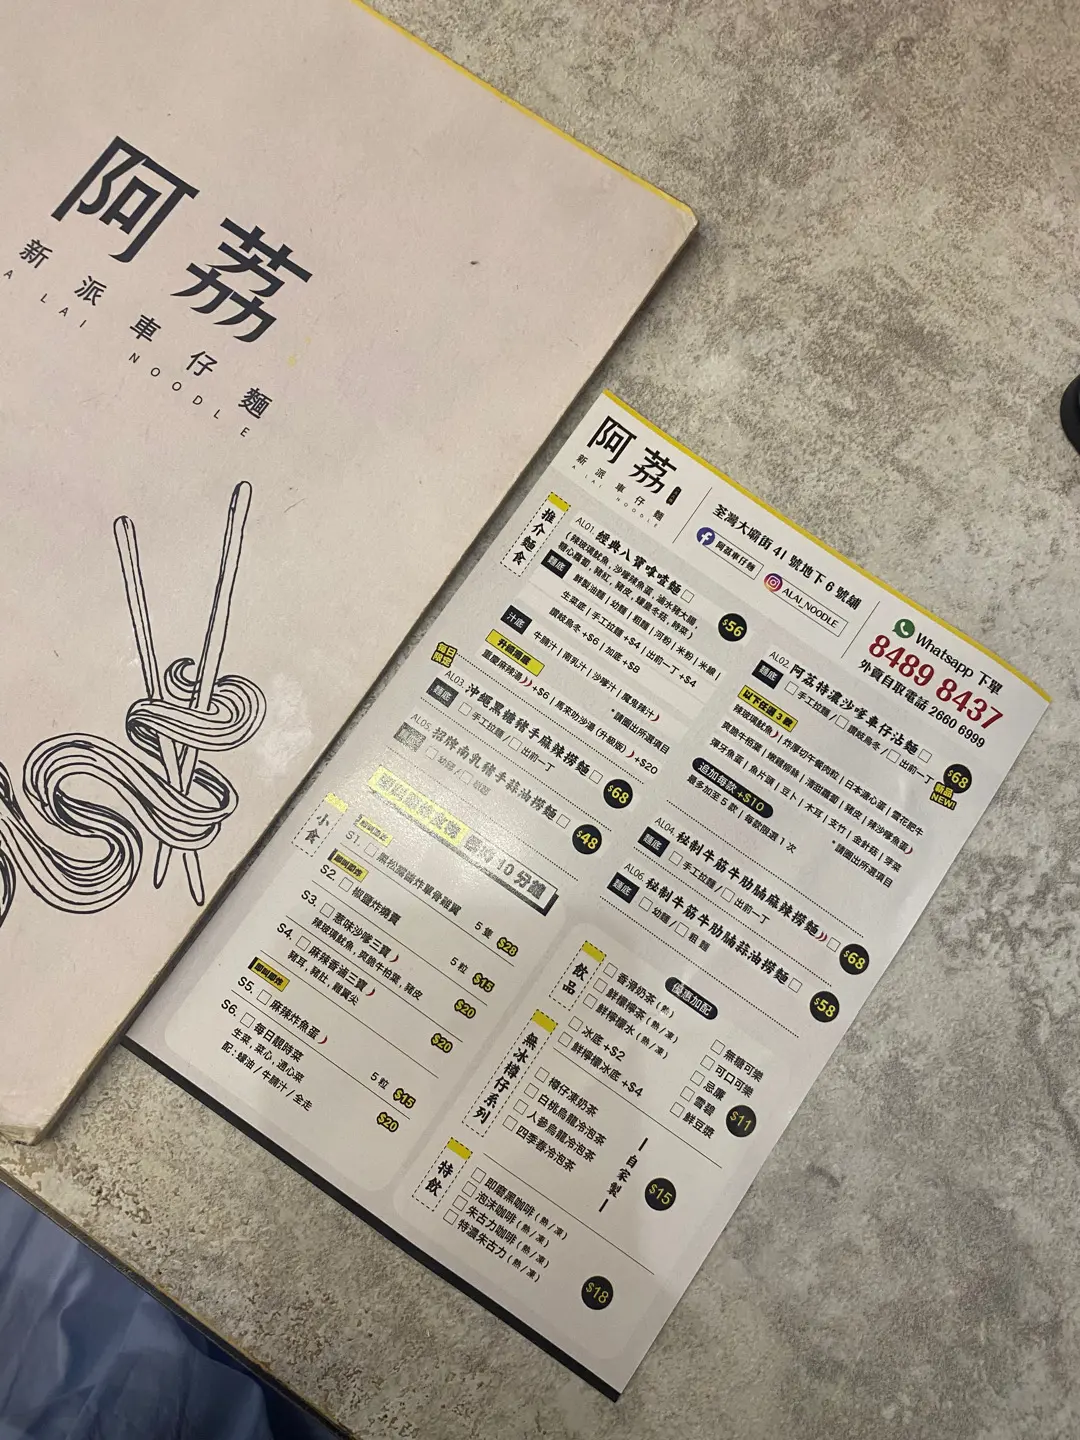 阿荔
新派車仔麵
A LAI NOODLE
阿荔
新派車仔麵
A LAI NOODLE
荃灣大壩街 41 號地下 6 號舖
阿荔車仔麵
ALAI_NOODLE
Whatsapp 下單
8489 8437
外賣自取電話 2660 6999
推介麵食
AL01. 經典八寶喳喳麵
(辣玻璃魷魚, 沙嗲辣魚蛋, 滷水豬大腸,
糖心蘿蔔, 豬紅, 豬皮, 蠔皇冬菇, 時菜)
$56
麵底
鮮製油麵 | 幼麵 | 粗麵 | 河粉 | 米粉 | 米線 |
生菜底 | 手工拉麵 +$4 | 出前一丁 +$4
讚岐烏冬 +$6 | 加底 +$8
汁底
牛腩汁 | 南乳汁 | 沙嗲汁 | 魔鬼辣汁
*請圈出所選項目
升級湯底
重慶麻辣湯 +$6 | 馬來叻沙湯 (升級版) +$20
每日限定
AL03. 沖繩黑糖豬手麻辣撈麵
麵底
手工拉麵 / 出前一丁
$68
AL05. 招牌南乳豬手蒜油撈麵
麵底
幼麵 / 粗麵
$48
AL02. 阿荔特濃沙嗲車仔沾麵
麵底
手工拉麵 / 讚岐烏冬 / 出前一丁
$68
新品 NEW!
以下任選 3 款
辣玻璃魷魚 | 炸厚切午餐肉粒 | 日本溏心蛋 | 雪花肥牛
爽脆牛柏葉 | 嫩雞柳絲 | 清甜蘿蔔 | 豬皮 | 辣沙嗲魚蛋
彈牙魚蛋 | 魚片頭 | 豆卜 | 木耳 | 支竹 | 金針菇 | 芽菜
*請圈出所選項目
追加每款 +$10
最多加至 5 款 | 每款限選 1 次
AL04. 秘制牛筋牛肋腩麻辣撈麵
麵底
手工拉麵 / 出前一丁
$68
AL06. 秘制牛筋牛肋腩蒜油撈麵
麵底
幼麵 / 粗麵
$58
10 分鐘
小食
S1. 黑松露脆炸單骨雞翼
5 隻 $28
S2. 椒鹽炸燒賣
5 粒 $15
S3. 惹味沙嗲三寶
辣玻璃魷魚, 爽脆牛柏葉, 豬皮
$20
S4. 麻辣香滷三寶
豬耳, 豬肚, 雞翼尖
$20
S5. 麻辣炸魚蛋
5 粒 $15
S6. 每日靚時菜
生菜, 菜心, 通心菜
配: 蠔油 / 牛腩汁 / 全走
$20
飲品
優惠加配
香滑奶茶 (熱)
鮮檸檬茶 (熱 / 凍)
鮮檸檬水 (熱 / 凍)
冰底 +$2
鮮檸檬冰底 +$4
無糖可樂
可口可樂
忌廉
雪碧
鮮豆漿
$11
無冰樽仔系列
樽仔凍奶茶
白桃烏龍冷泡茶
人參烏龍冷泡茶
四季春冷泡茶
自家製
$15
特飲
即磨黑咖啡 (熱 / 凍)
泡沫咖啡 (熱 / 凍)
朱古力咖啡 (熱 / 凍)
特濃朱古力 (熱 / 凍)
$18